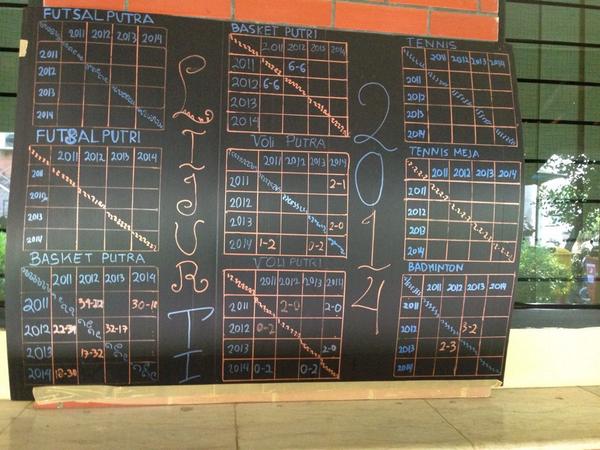 FUTSAL PUTRA
2011 2012 2013 2014
2011
2012
2013
2014
FUTSAL PUTRI
2011 2012 2013 2014
2011
2012
2013
2014
BASKET PUTRA
2011 2012 2013 2014
2011 30-18
2012 32-17
2013 17-32
2014 18-30
LIGUR TI
BASKET PUTRI
2011 2012 2013 2014
2011 6-6
2012 6-6
2013
2014
VOLI PUTRA
2011 2012 2013 2014
2011 2-1
2012
2013 2-0
2014 1-2 0-2
VOLI PUTRI
2011 2012 2013 2014
2011 2-0 2-0
2012 0-2
2013 2-0
2014 0-2 0-2
2014
TENNIS
2011 2012 2013 2014
2011
2012
2013
2014
TENNIS MEJA
2011 2012 2013 2014
2011
2012
2013
2014
BADMINTON
2011 2012 2013 2014
2011
2012 3-2
2013 2-3
2014